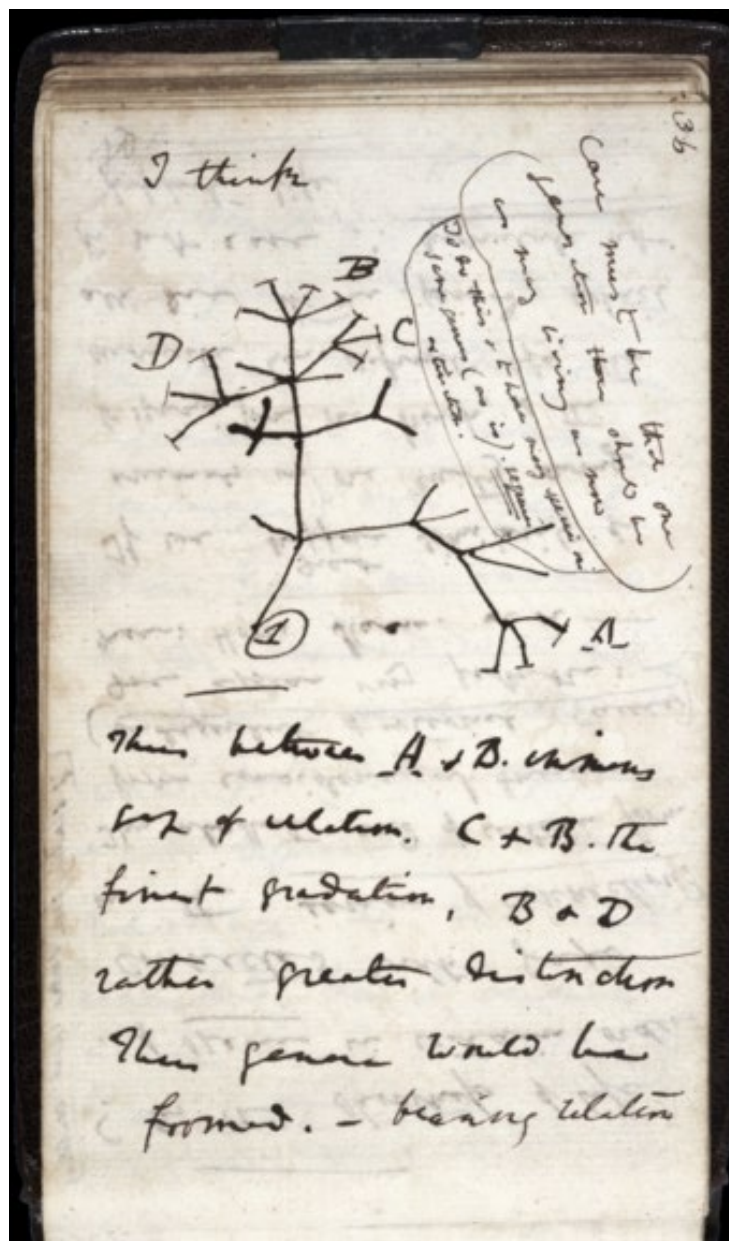 36
I think
Case must be that one
generation then should be
as many living as now
To do this & to have many species in
same genus (as is). requires
extinction.
B
C
D
A
1
Thus between A & B. immens
gap of relation. C & B. the
finest gradation, B & D
rather greater distinction
Thus genera would be
formed. – bearing relation